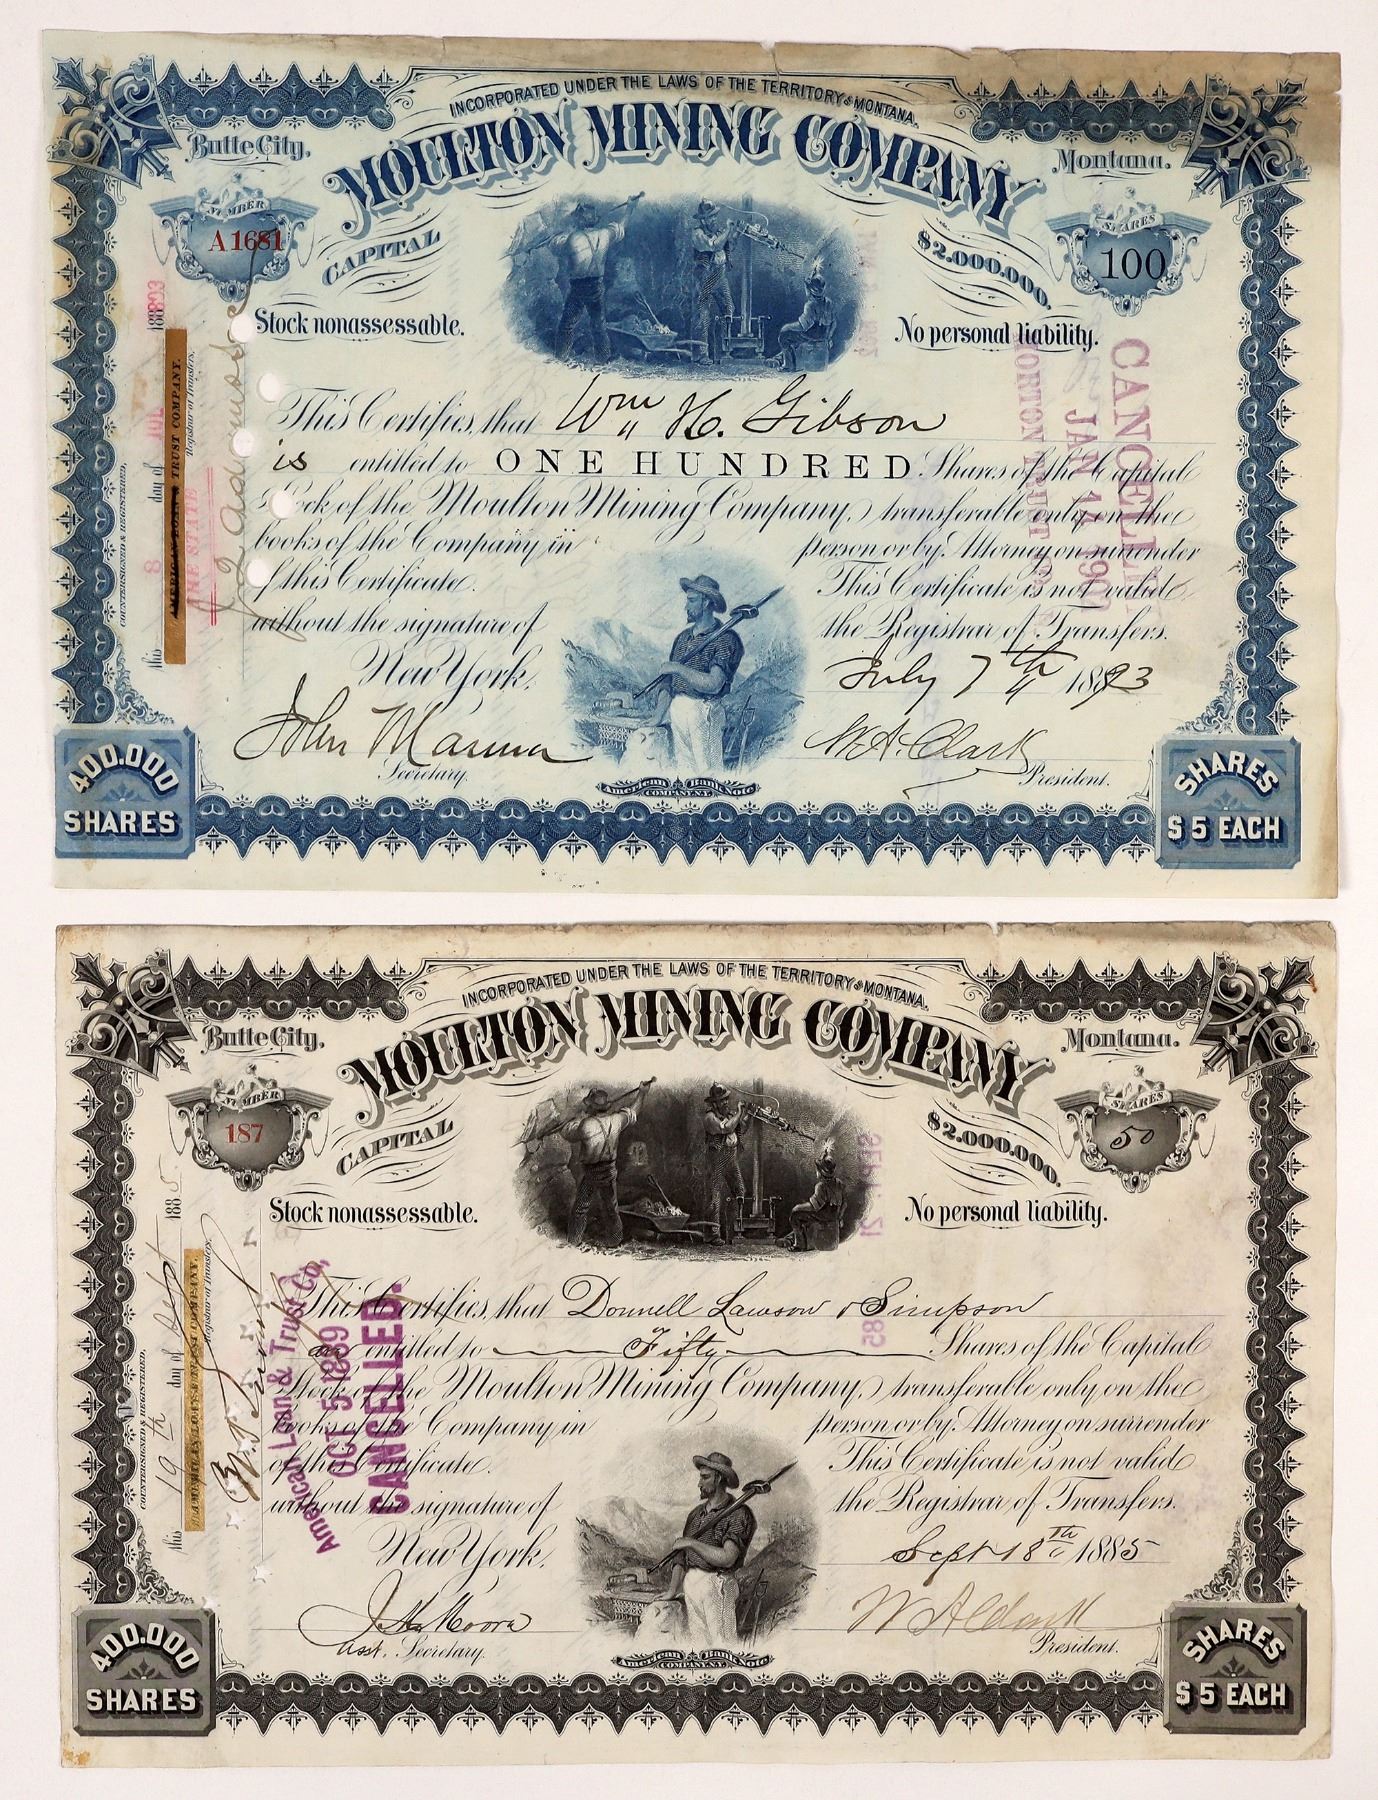 INCORPORATED UNDER THE LAWS OF THE TERRITORY OF MONTANA.
Butte City. MOULTON MINING COMPANY Montana.
NUMBER
A1681
CAPITAL $2.000.000.
SHARES
100
Stock nonassessable. No personal liability.
This Certifies, that Wm H. Gibson
is entitled to ONE HUNDRED Shares of the Capital
Stock of the Moulton Mining Company, transferable only on the
books of the Company, in person or by Attorney on surrender
of this Certificate. This Certificate is not valid
without the signature of the Registrar of Transfers.
New York, July 7th 1893
Secretary. W.A. Clark President.
American Bank Note COMPANY N.Y.
400.000 SHARES
SHARES $5 EACH
COUNTERSIGNED & REGISTERED,
this 8 day of JUL
AMERICAN LOAN & TRUST COMPANY.
Registrar of Transfers.
THE STATE
CANCELLED
JAN 14
MORTON TRUST
INCORPORATED UNDER THE LAWS OF THE TERRITORY OF MONTANA.
Butte City. MOULTON MINING COMPANY Montana.
NUMBER
187
CAPITAL $2.000.000.
SHARES
50
Stock nonassessable. No personal liability.
This Certifies, that Donnell Lawson & Simpson
entitled to Fifty Shares of the Capital
Stock of the Moulton Mining Company, transferable only on the
books of the Company, in person or by Attorney on surrender
of this Certificate. This Certificate is not valid
without the signature of the Registrar of Transfers.
New York, Sept 18th 1885
Asst. Secretary. W A Clark President.
American Bank Note COMPANY N.Y.
400.000 SHARES
SHARES $5 EACH
COUNTERSIGNED & REGISTERED.
this 19th day of Sept 1885
Registrar of Transfers.
American Loan & Trust Co,
OCT 5 1889
CANCELLED.